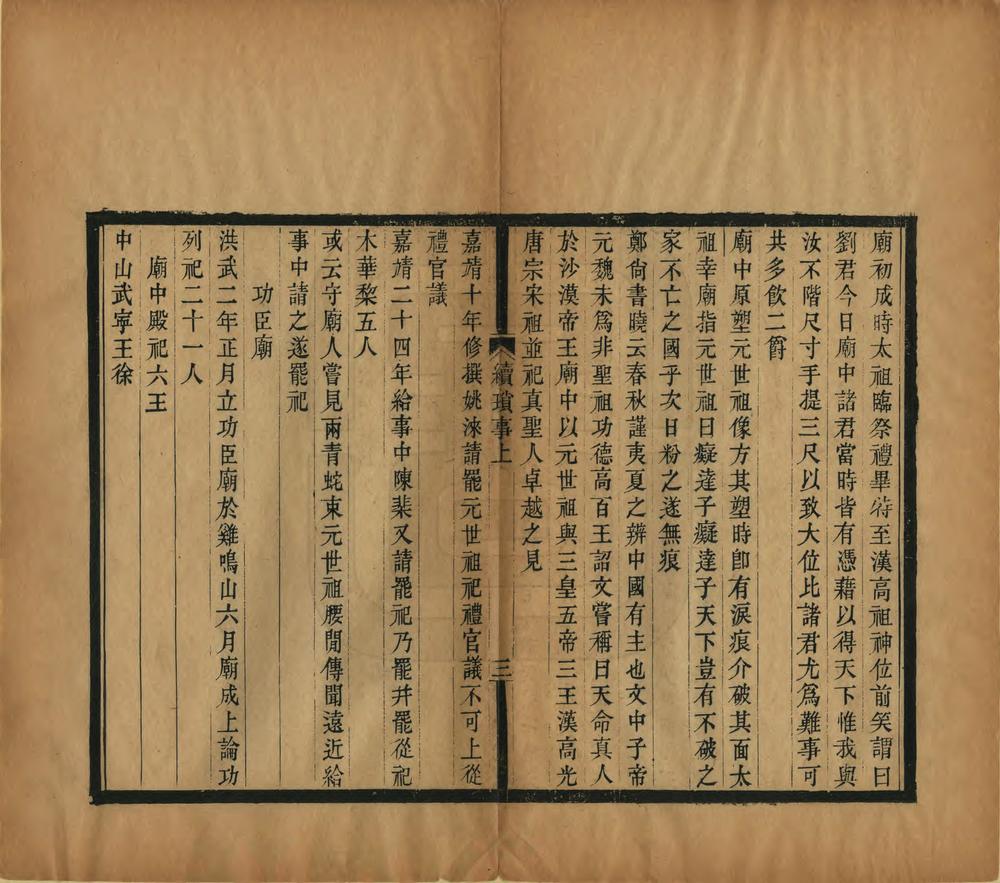 廟初成時太祖臨祭禮畢特至漢高祖神位前笑謂曰
劉君今日廟中諸君當時皆有憑藉以得天下惟我與
汝不階尺寸手提三尺以致大位比諸君尤爲難事可
共多飲二爵
廟中原塑元世祖像方其塑時卽有淚痕介破其面太
祖幸廟指元世祖曰癡達子癡達子天下豈有不破之
家不亡之國乎次日粉之遂無痕
鄭尙書曉云春秋謹夷夏之辨中國有主也文中子帝
元魏未爲非聖祖功德高百王詔文嘗稱曰天命真人
於沙漠帝王廟中以元世祖與三皇五帝三王漢高光
唐宗宋祖並祀真聖人卓越之見
續瑣事上
三
嘉靖十年修撰姚淶請罷元世祖祀禮官議不可上從
禮官議
嘉靖二十四年給事中陳棐又請罷祀乃罷幷罷從祀
木華黎五人
或云守廟人嘗見兩青蛇束元世祖腰閒傳聞遠近給
事中請之遂罷祀
功臣廟
洪武二年正月立功臣廟於雞鳴山六月廟成上論功
列祀二十一人
廟中殿祀六王
中山武寧王徐